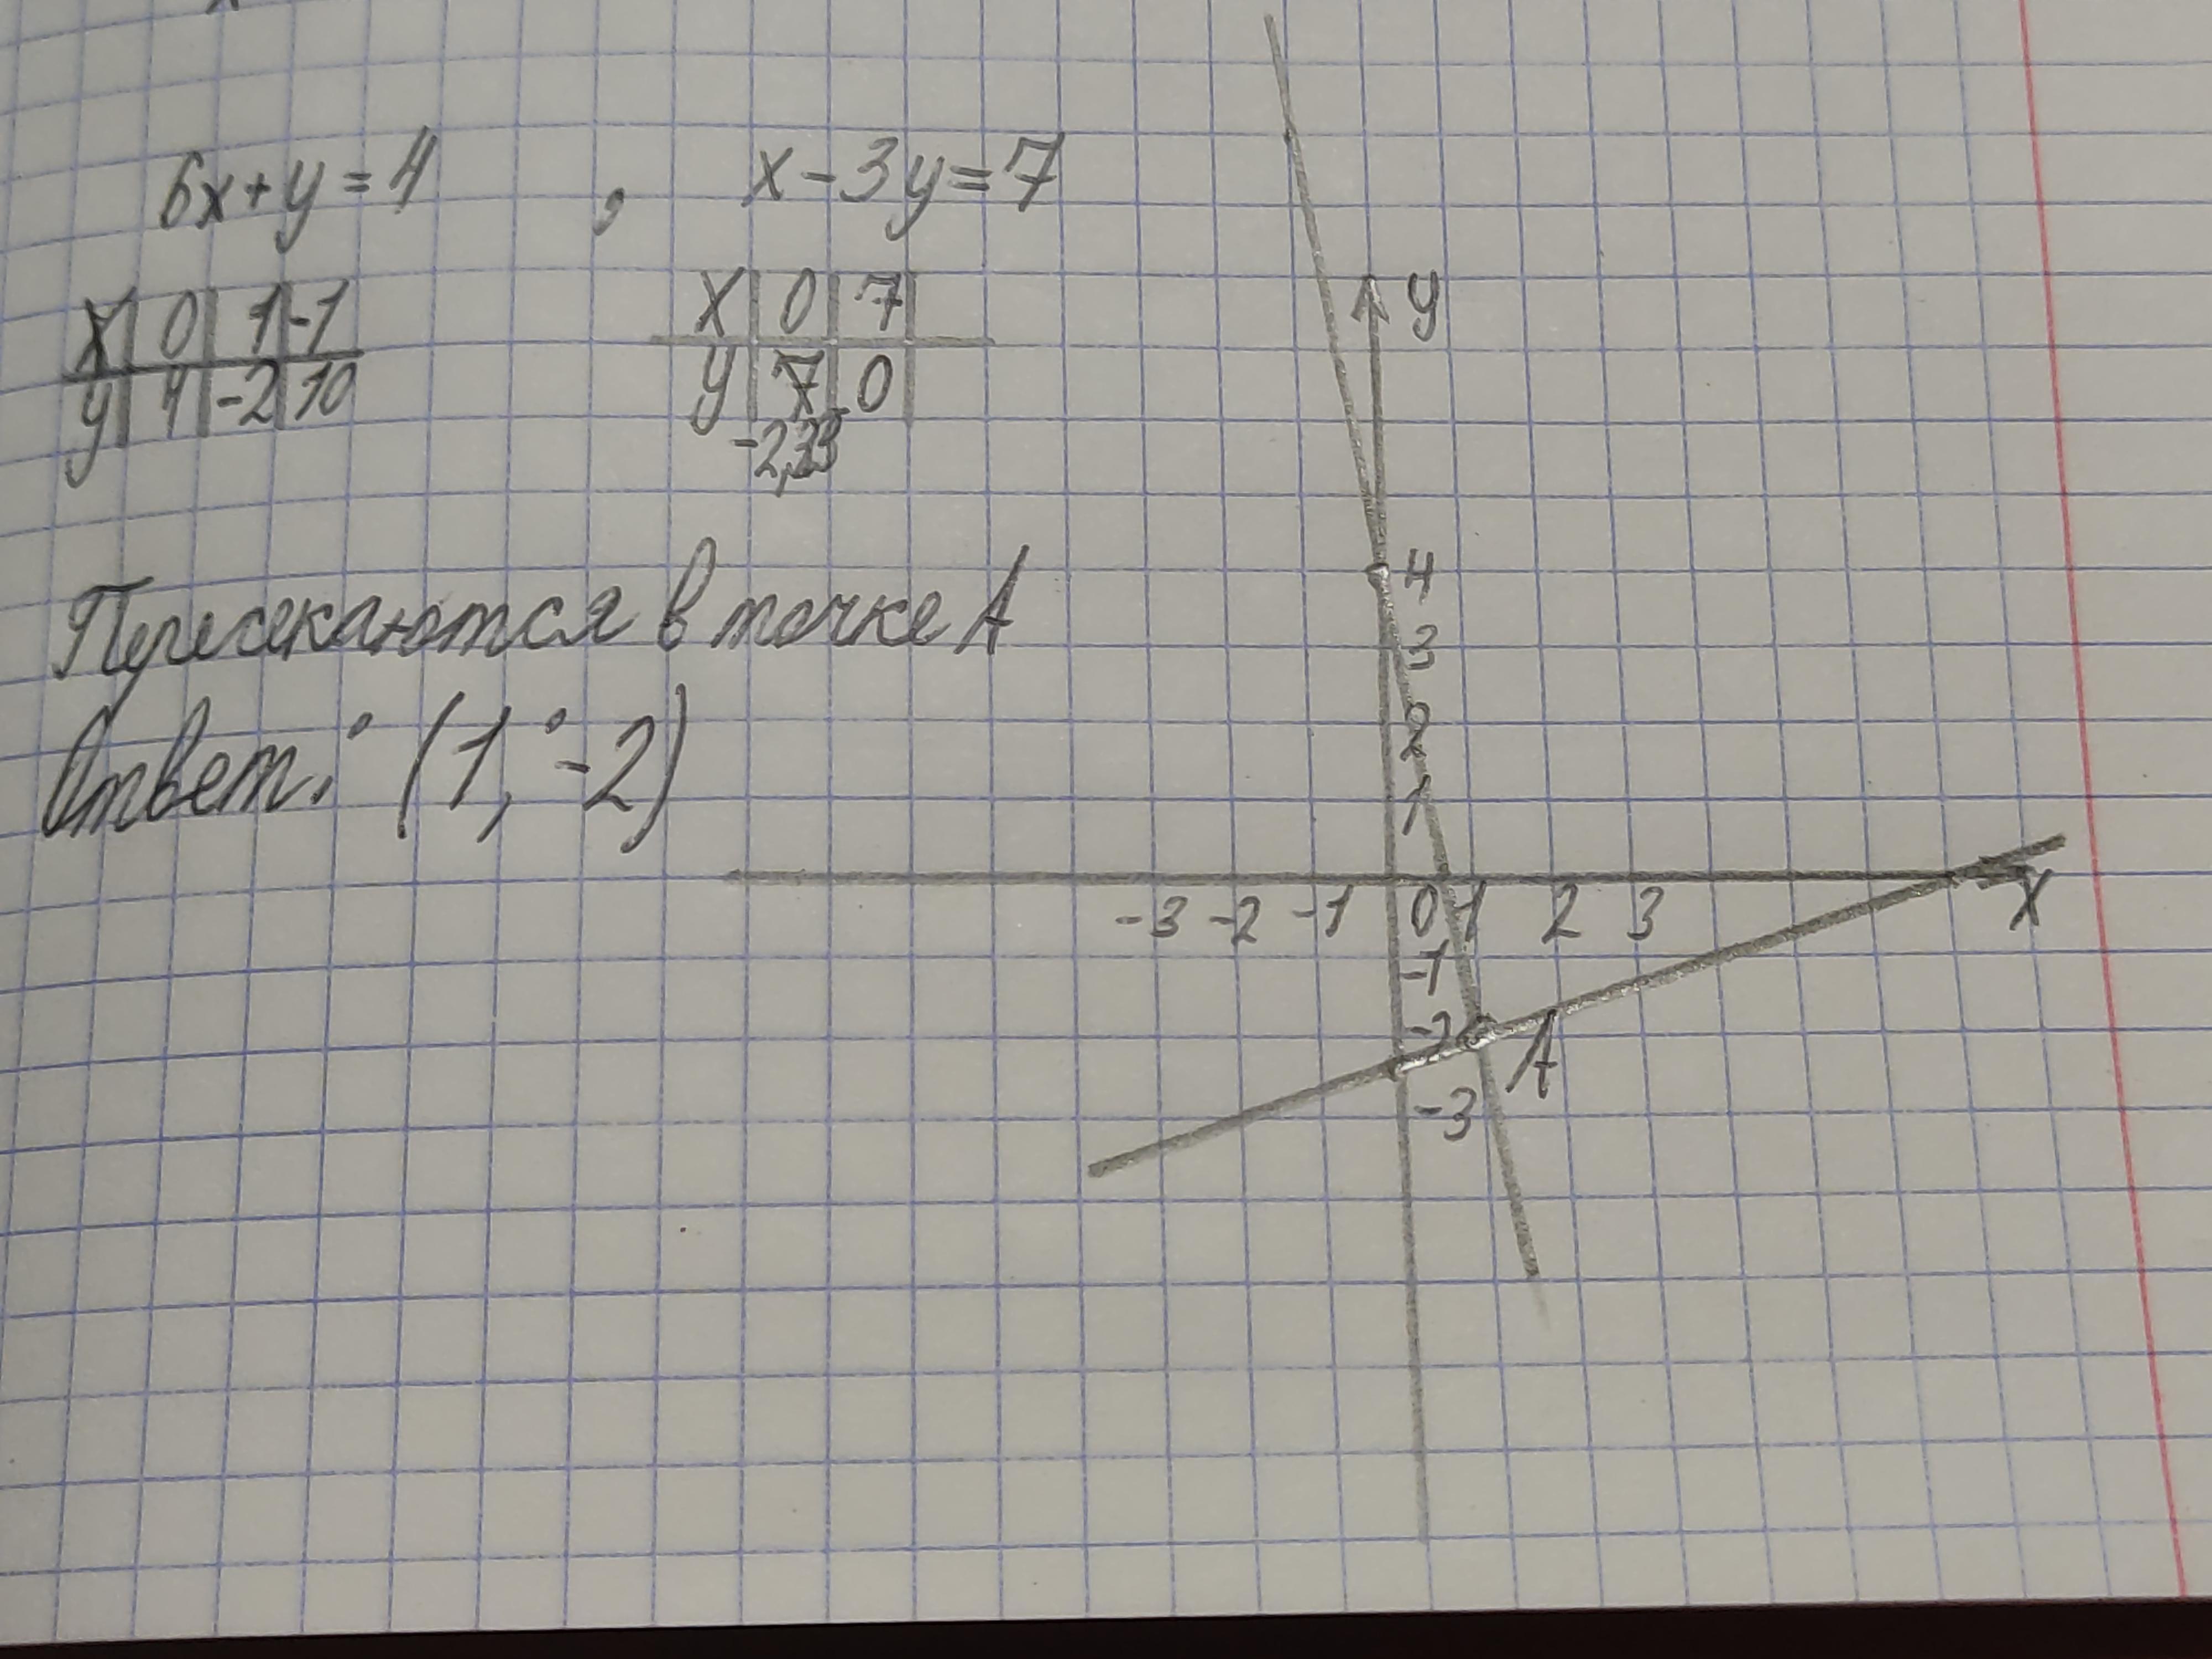 6x+y=4 , x-3y=7
x 0 1 -1
y 4 -2 10
x 0 7
y 7 0
-2,33
Пересекаются в точке А
Ответ: (1; -2)
y
4
3
2
1
-3 -2 -1 0 1 2 3 x
-1
-2
A
-3